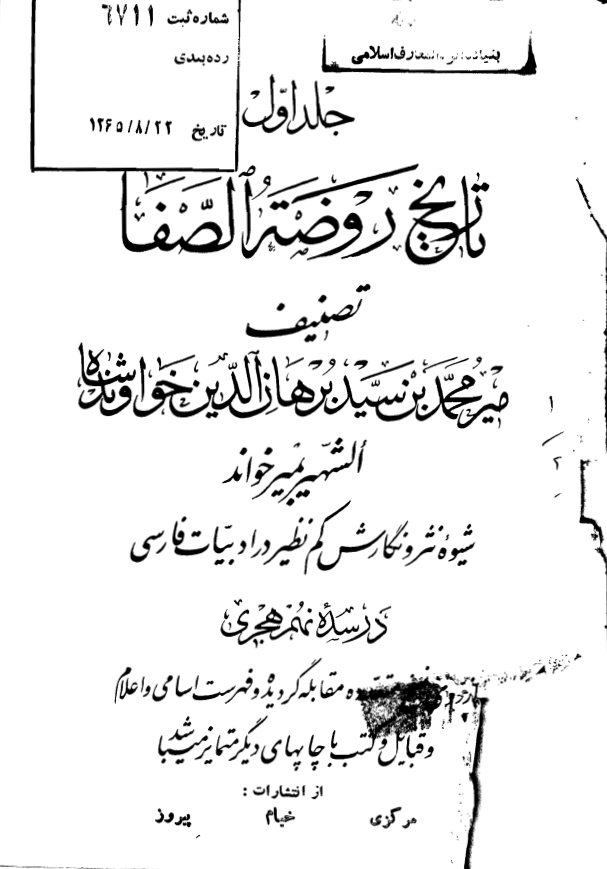 شماره ثبت ۶۷۱۱
رده‌بندی
تاریخ ۱۳۶۵/۸/۲۲
بنیاد دائرة المعارف اسلامی
جلد اوّل
تاریخ روضة الصّفا
تصنیف
میر محمّد بن سیّد برهان الدّین خواوند شاه
الشهیر بمیر خواند
شیوهٔ نثر و نگارش کم نظیر در ادبیّات فارسی
در سدهٔ نهم هجری
مقابله گردیده و فهرست اسامی و اعلام
و قبایل و کتب با چاپهای دیگر متمایز میباشد
از انتشارات :
مرکزی خیام پیروز
۱
۲